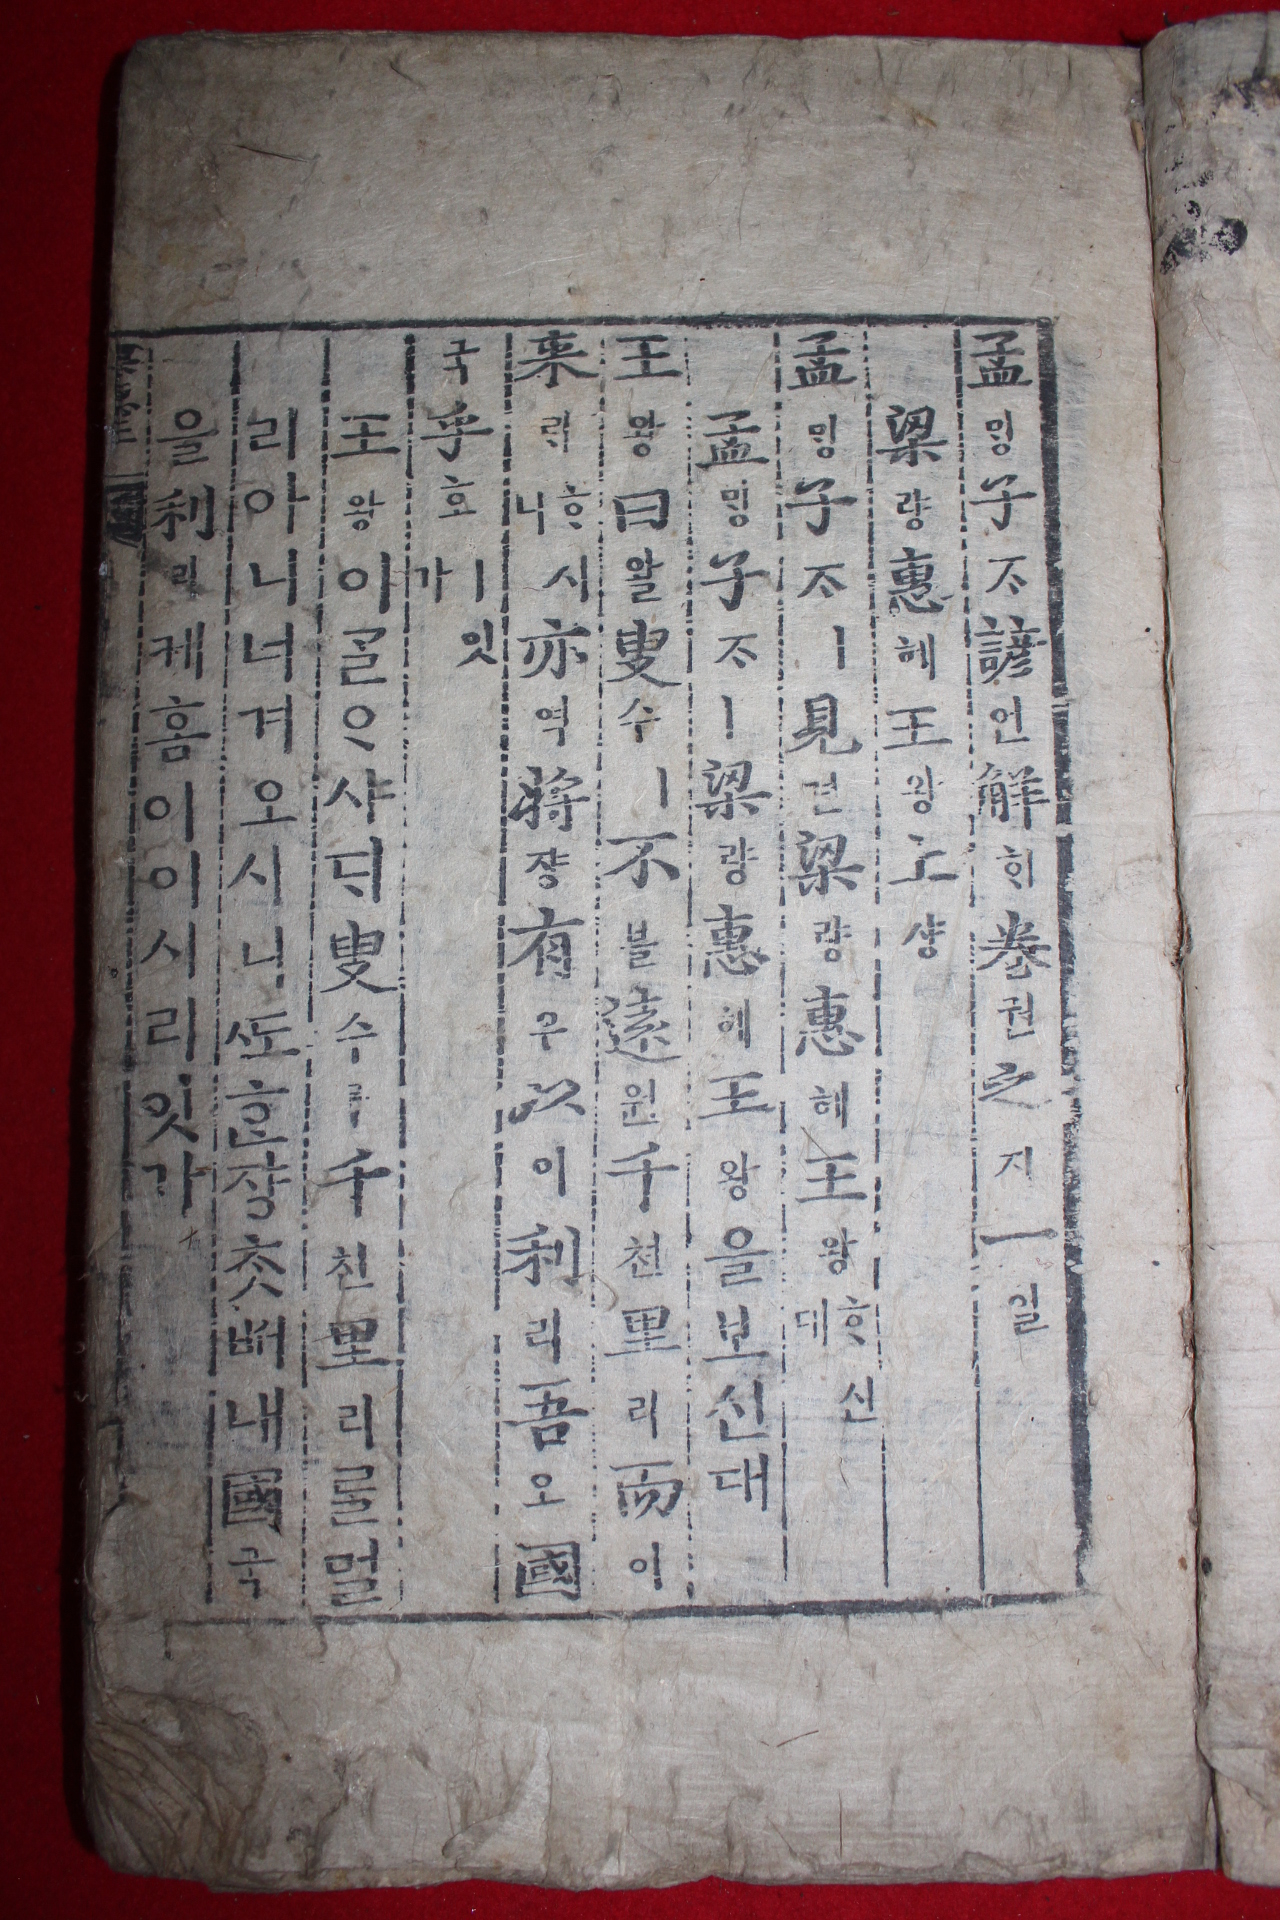 孟ᄆᆡᆼ子ᄌᆞ諺언解ᄒᆡ卷권之지一일
梁량惠혜王왕上샹
孟ᄆᆡᆼ子ᄌᆞㅣ見견梁량惠혜王왕ᄒᆞ신대
孟ᄆᆡᆼ子ᄌᆞㅣ梁량惠혜王왕을보신대
王왕曰왈叟수ㅣ不블遠원千쳔里리而이
來ᄅᆡᄒᆞ시니亦역將쟝有유以이利리吾오國
국乎호ㅣ잇가
王왕이ᄀᆞᆯᄋᆞ샤ᄃᆡ叟수ㅣ千쳔里리를멀
리아니녀겨오시니ᄯᅩ흔쟝ᄎᆞᆺᄡᅥ내國국
을利리케홈이이시리잇가